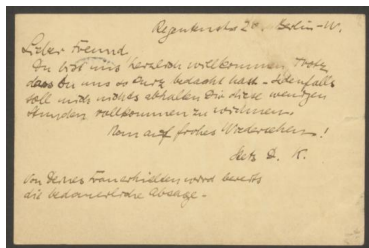 Regentenstr 24. Berlin-W.
Lieber Freund
Du bist uns herzlich willkommen, Trotz
dass Du uns so kurz bedacht hast. Jedenfalls
soll mich nichts abhalten Dir diese wenigen
Stunden vollkommen zu widmen.
Also auf frohes Wiedersehen!
Stets D. K.
Von Deiner Frau erhielten wir bereits
die bedauerliche Absage.